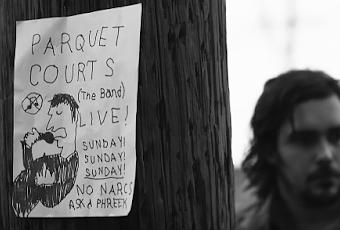 PARQUET
COURTS
(The Band)
LIVE!
SUNDAY!
SUNDAY!
SUNDAY!
NO NARCS
ASK A PHREEK